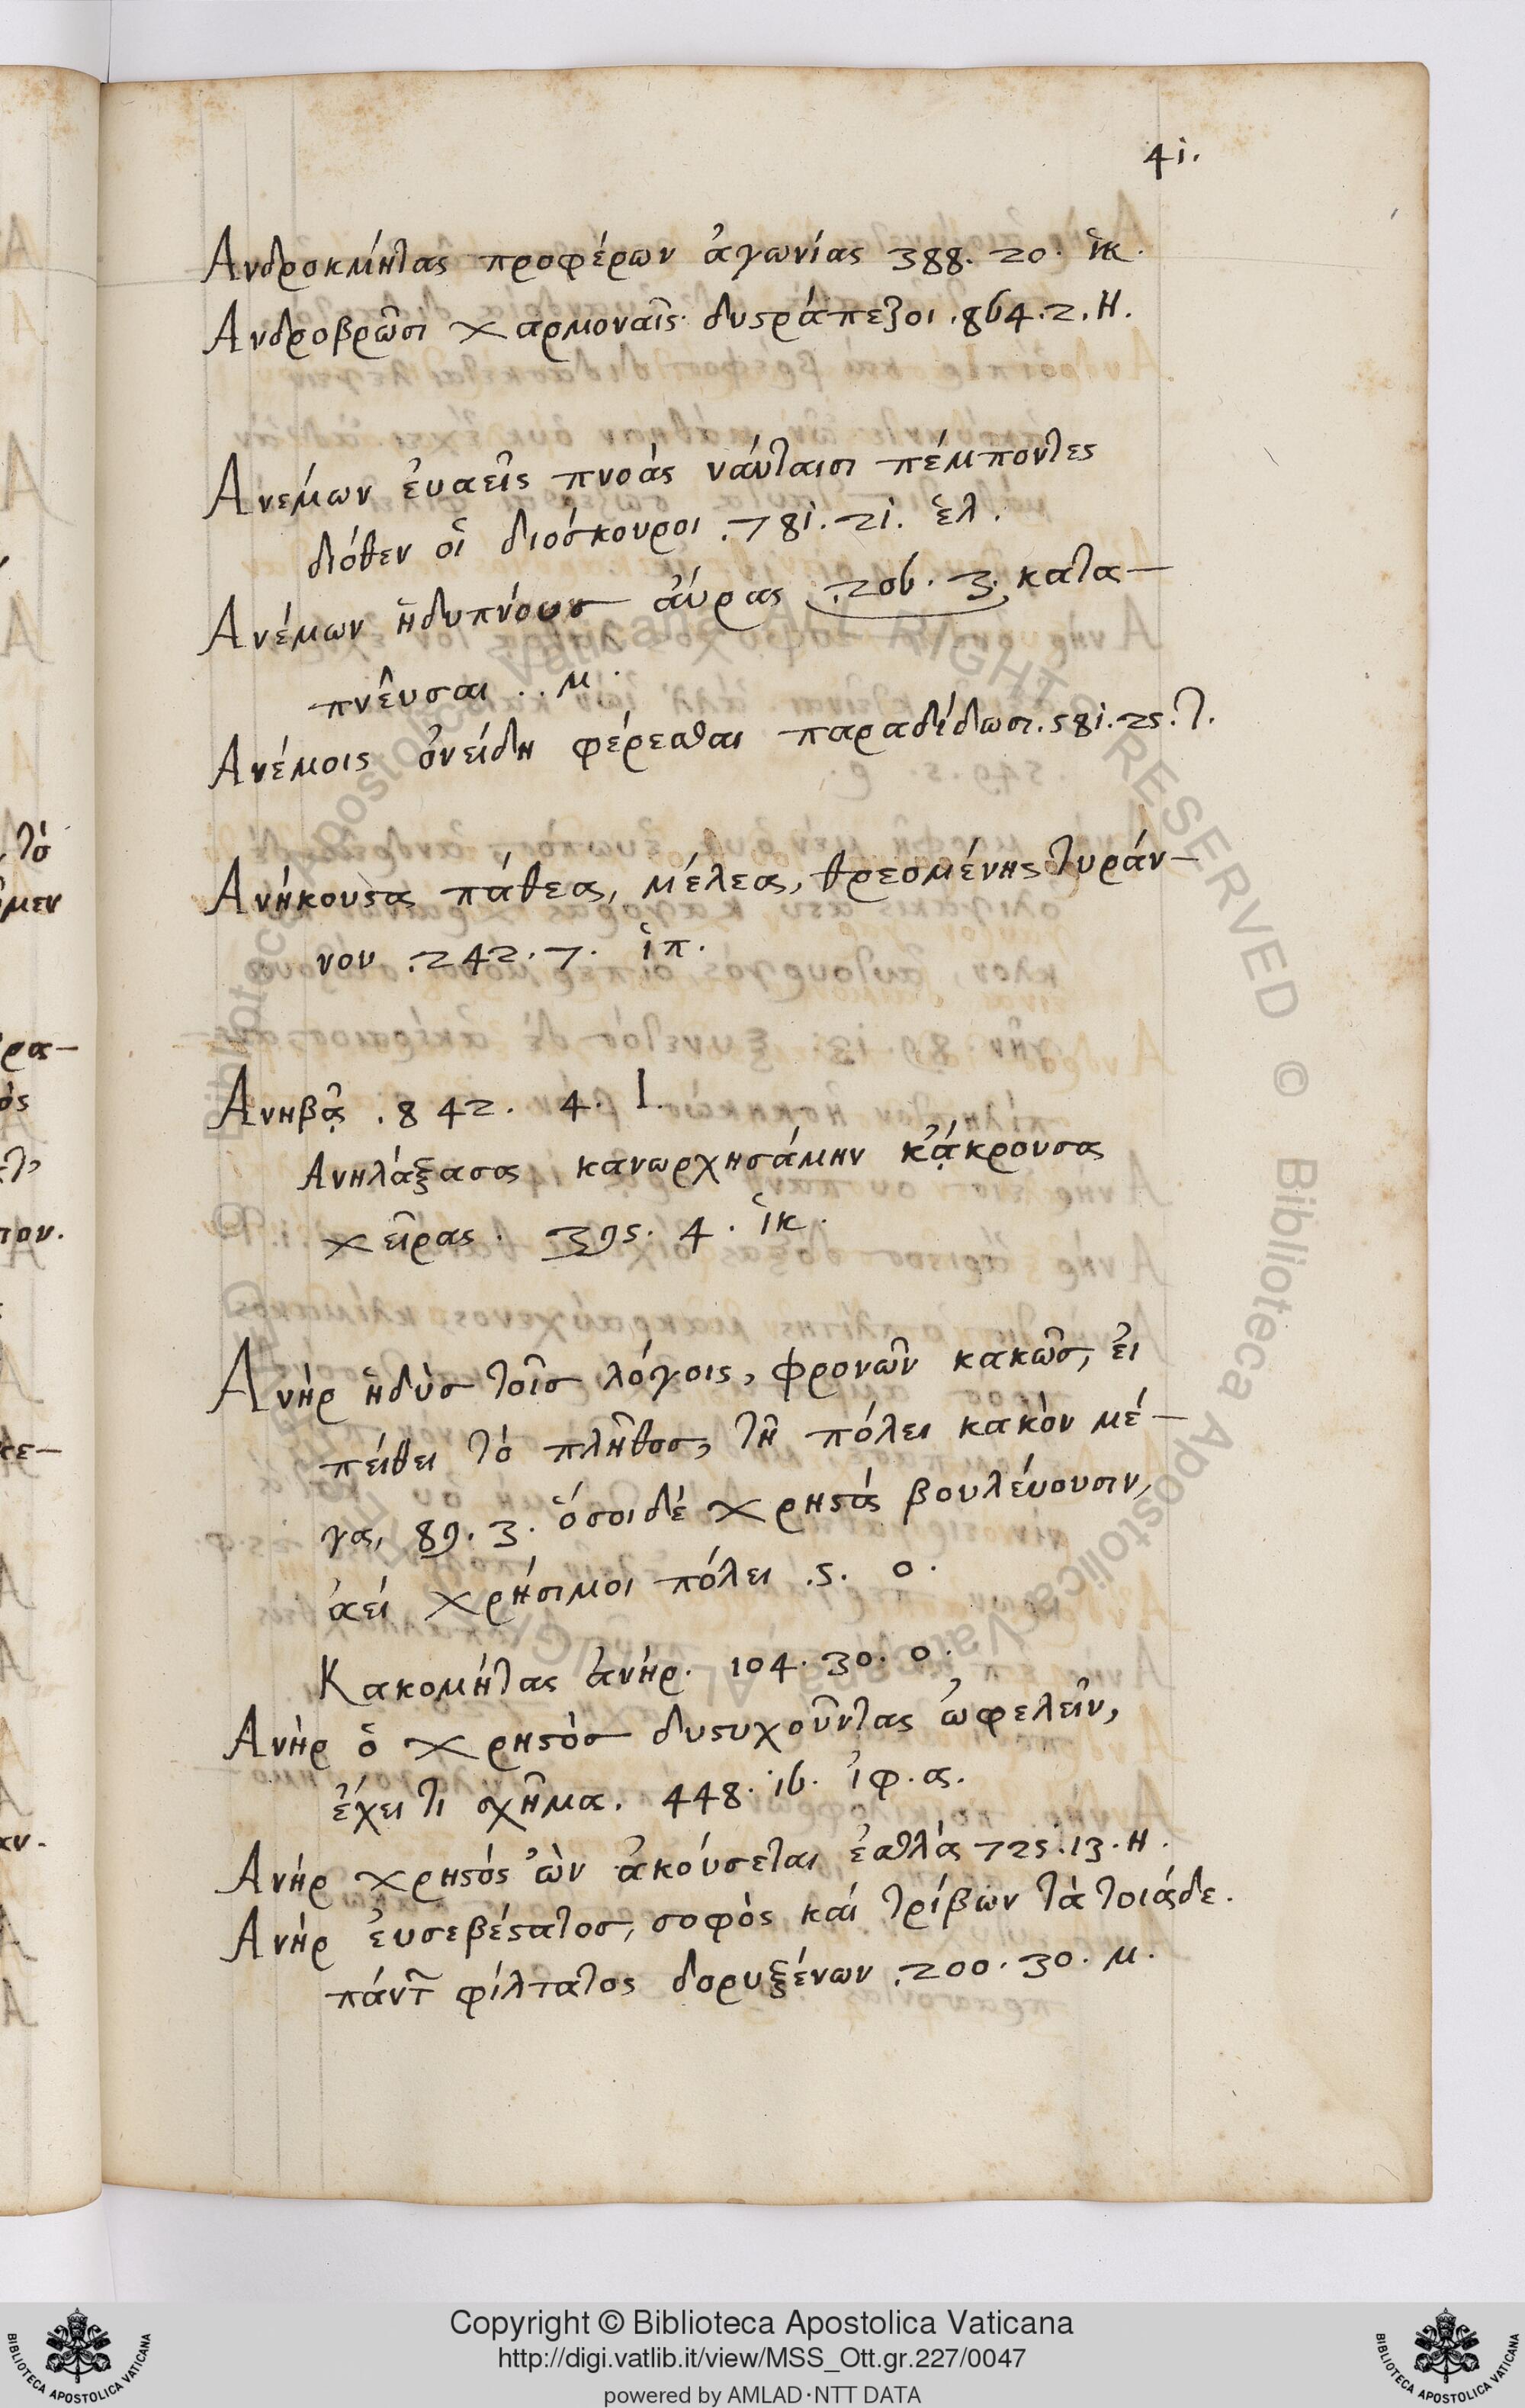 41.
Ανδροκμήτας προφέρων ἀγωνίας 388. 20. ἱκ.
Ανδροβρῶσι χαρμοναῖς δυςράπεζοι .864.2. Η.
Ανεμων ἐυαεῖς πνοὰς νάυταισι πέμποντες
διόθεν οἱ διόσκουροι .781. 21. ἑλ.
Ανέμων ἡδυπνόους ἀύρας .206. 3. κατα-
πνεῦσαι .. μ.
Ανέμοις ὀνείδη φέρεσθαι παραδίδωσι. 581. 25. τ.
Ανήκουσας πάθεα, μέλεα, θρεομένης τυράν-
νου .242. 7. ἱπ.
Ανηβᾷς .842. 4. Ι.
Ανηλάξασα κανωρχησάμην κᾄκρουσα
χεῖρας. 395. 4. ἱκ.
Ανὴρ ἡδὺς τοῖς λόγοις, φρονῶν κακῶς, ἐι
πείθει τὸ πλῆθος, τῆ πόλει κακὸν μέ-
γα, 89. 3. ὅσοι δέ χρηστά βουλέυουσιν,
ἀεί χρήσιμοι πόλει .5. ο.
Κακομήτας ἀνήρ. 104. 30. ο.
Ανὴρ ὁ χρηστὸς δυστυχοῦντας ὠφελεῖν,
ἔχει τι σχῆμα. 448. 16. ἰφ. α.
Ανήρ χρηστός ὢν ἀκούσεται ἐσθλά 725. 13. Η.
Ανὴρ ἐυσεβέστατος, σοφὸς καί τρίβων τὰ τοιάδε.
πάντ̃ φίλτατος δορυξένων .200. 30. μ.
Copyright © Biblioteca Apostolica Vaticana
http://digi.vatlib.it/view/MSS_Ott.gr.227/0047
powered by AMLAD·NTT DATA